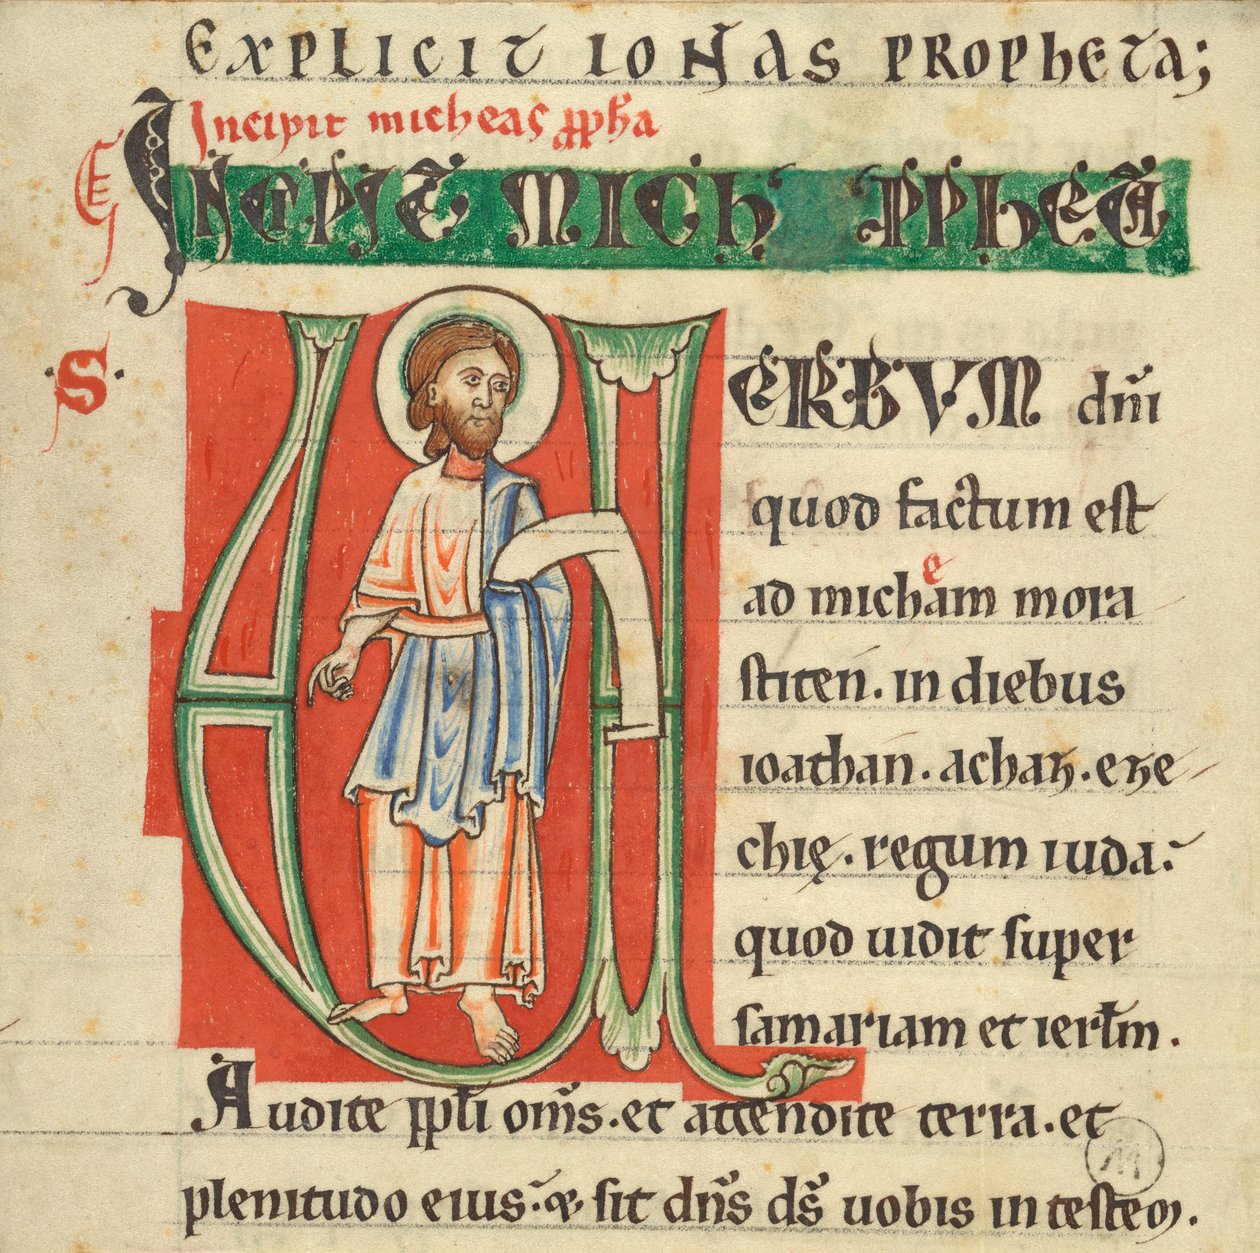 EXPLICIT IONAS PROPHETA;
Incipit micheas ꝓph̄a
INCIPIT MICH PPHETA
VERBUM dn̄i
quod factum est
ad micheam mora
stiten̄. in diebus
ioathan. achaz. eze
chię. regum iuda.
quod uidit super
samariam et ierl̄m.
Audite ppl̄i om̄s. et attendite terra. et
plenitudo eius. & sit dn̄s ds̄ uobis in testem.
S
M